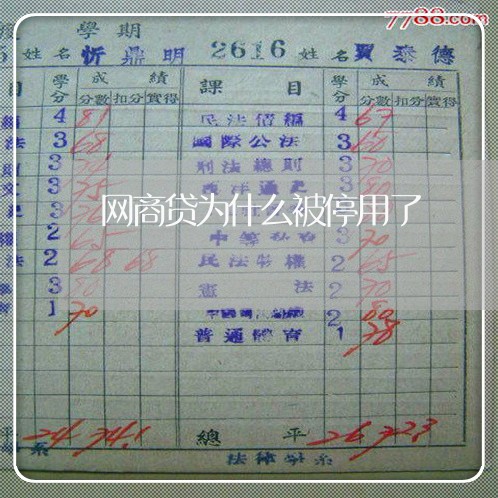 7788.com
學期
姓名 忻鼎明 2616 姓名 賈泰德
目 學分 成績 課目 學分 成績
分數 扣分 實得 分數 扣分 實得
4 81 民法債編 4 67
法 3 68 國際公法 3 60
3 刑法總則 3 70
3 75 西洋通史 3 80
网商贷为什么被停用了
2 65 3 70
法 2 68 68 民法物權 2 65
3 80 憲法 2 70
1 70 2 80
普通體育 1 78
平 24 74.1 總平 26 72.3
系 法律學系